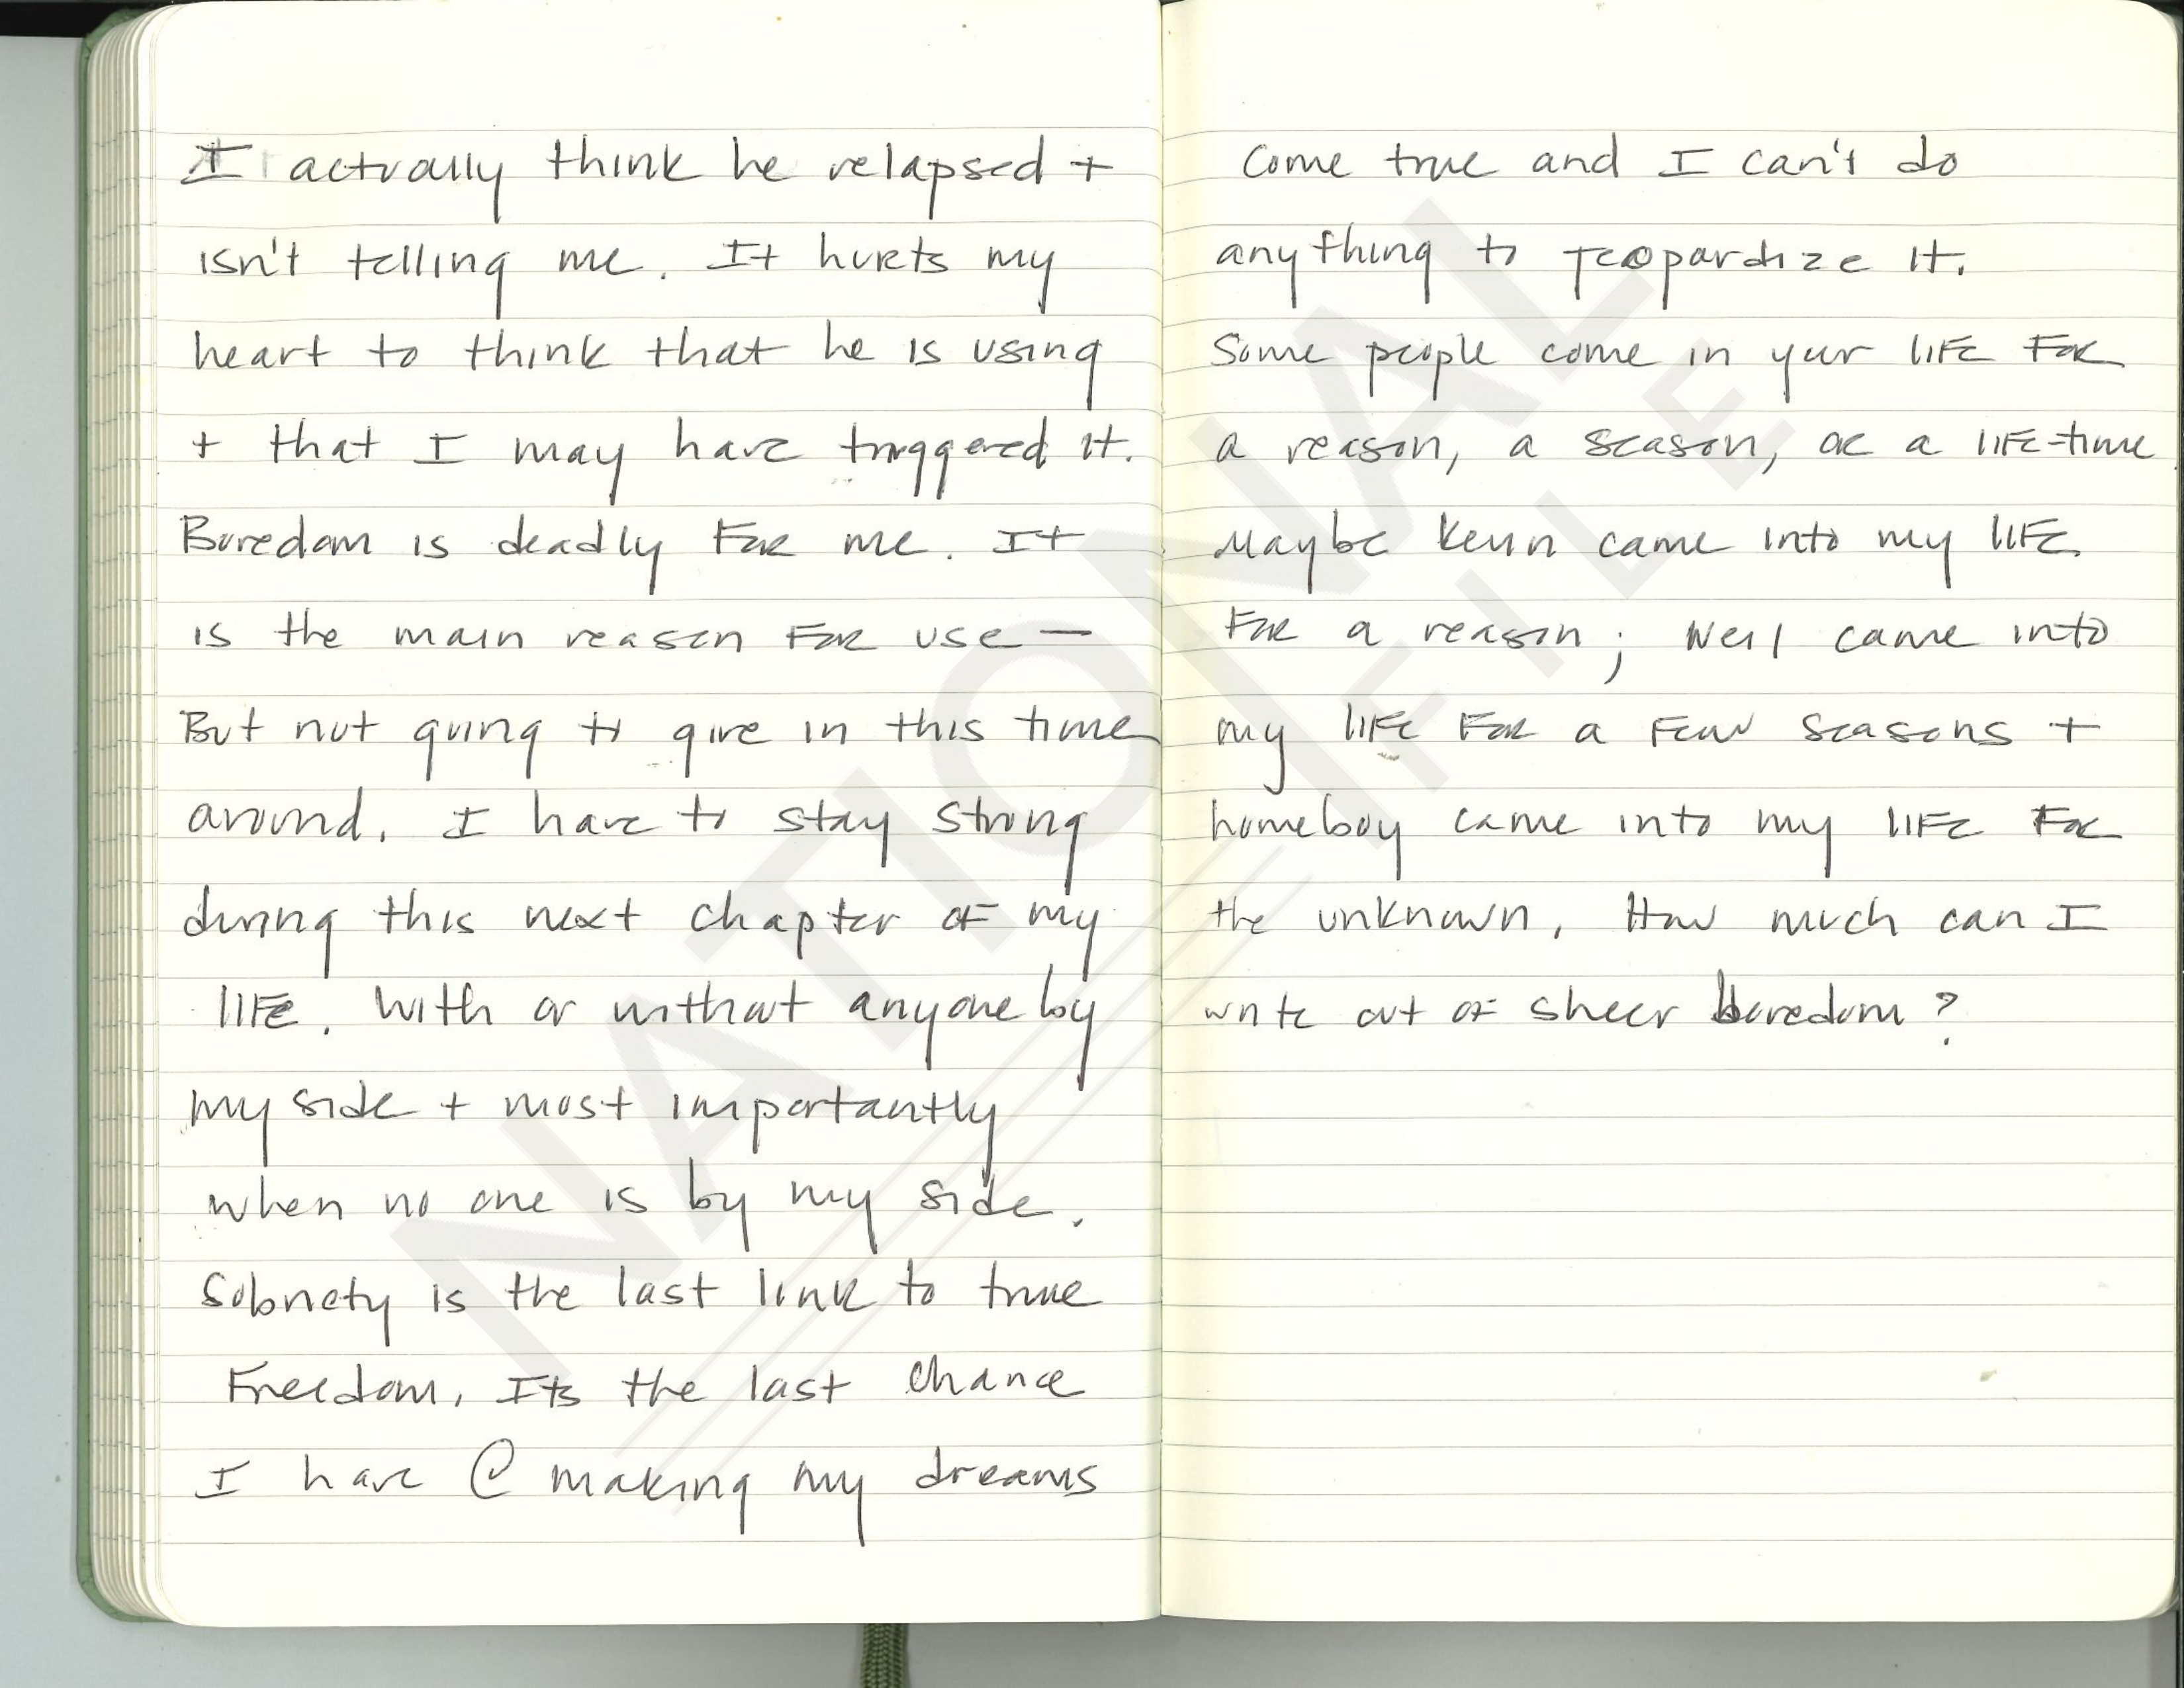 I actually think he relapsed +
isn't telling me. It hurts my
heart to think that he is using
+ that I may have triggered it.
Boredom is deadly for me. It
is the main reason for use —
But not going to give in this time
around. I have to stay strong
during this next chapter of my
life. With or without anyone by
my side + most importantly
when no one is by my side.
Sobriety is the last link to true
Freedom. Its the last chance
I have @ making my dreams
come true and I can't do
anything to jeopardize it.
Some people come in your life for
a reason, a season, or a life-time
Maybe Kevin came into my life
for a reason; Neil came into
my life for a few seasons +
homeboy came into my life for
the unknown. How much can I
write out of sheer boredom?
NATIONAL
FILE